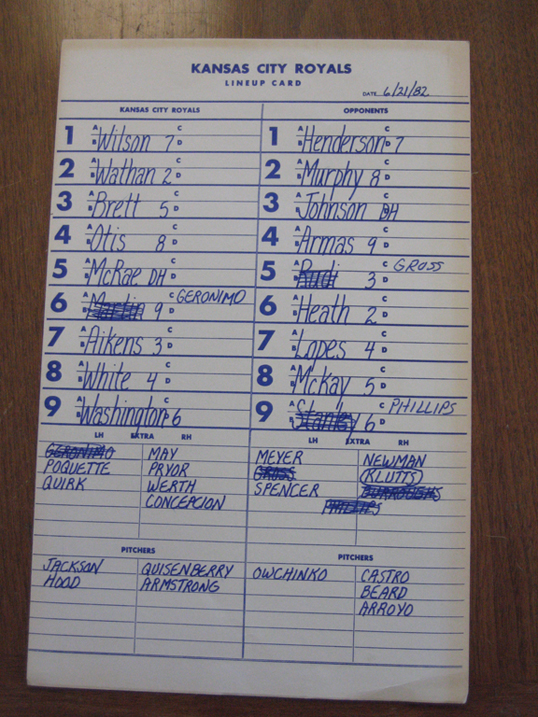 KANSAS CITY ROYALS
LINEUP CARD
DATE 6/21/82
KANSAS CITY ROYALS
1 A B Wilson 7 C D
2 A B Wathan 2 C D
3 A B Brett 5 C D
4 A B Otis 8 C D
5 A B McRae DH C D
6 A B Martin 9 C D GERONIMO
7 A B Aikens 3 C D
8 A B White 4 C D
9 A B Washington 6 C D
LH EXTRA RH
GERONIMO MAY
POQUETTE PRYOR
QUIRK WERTH
CONCEPCION
PITCHERS
JACKSON QUISENBERRY
HOOD ARMSTRONG
OPPONENTS
1 A B Henderson 7 C D
2 A B Murphy 8 C D
3 A B Johnson DH C D
4 A B Armas 9 C D
5 A B Rudi 3 C D GROSS
6 A B Heath 2 C D
7 A B Lopes 4 C D
8 A B McKay 5 C D
9 A B Stanley 6 C D PHILLIPS
LH EXTRA RH
MEYER NEWMAN
GROSS KLUTTS
SPENCER BURROUGHS
PHILLIPS
PITCHERS
OWCHINKO CASTRO
BEARD
ARROYO